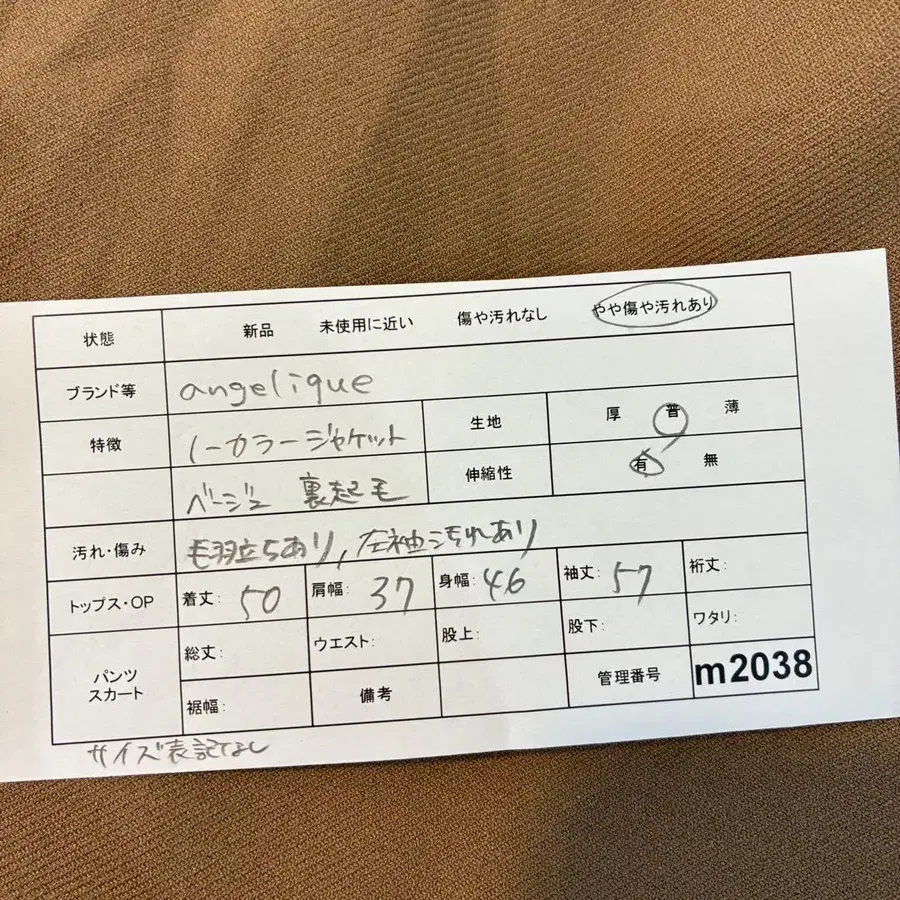 状態 新品 未使用に近い 傷や汚れなし やや傷や汚れあり
ブランド等 angelique
特徴 ノーカラージャケット 生地 厚 普 薄
ベージュ 裏起毛 伸縮性 有 無
汚れ・傷み 毛羽立ちあり,左袖汚れあり
トップス・OP 着丈: 50 肩幅: 37 身幅: 46 袖丈: 57 裄丈:
パンツ スカート 総丈: ウエスト: 股上: 股下: ワタリ:
裾幅: 備考 管理番号 m2038
サイズ表記なし